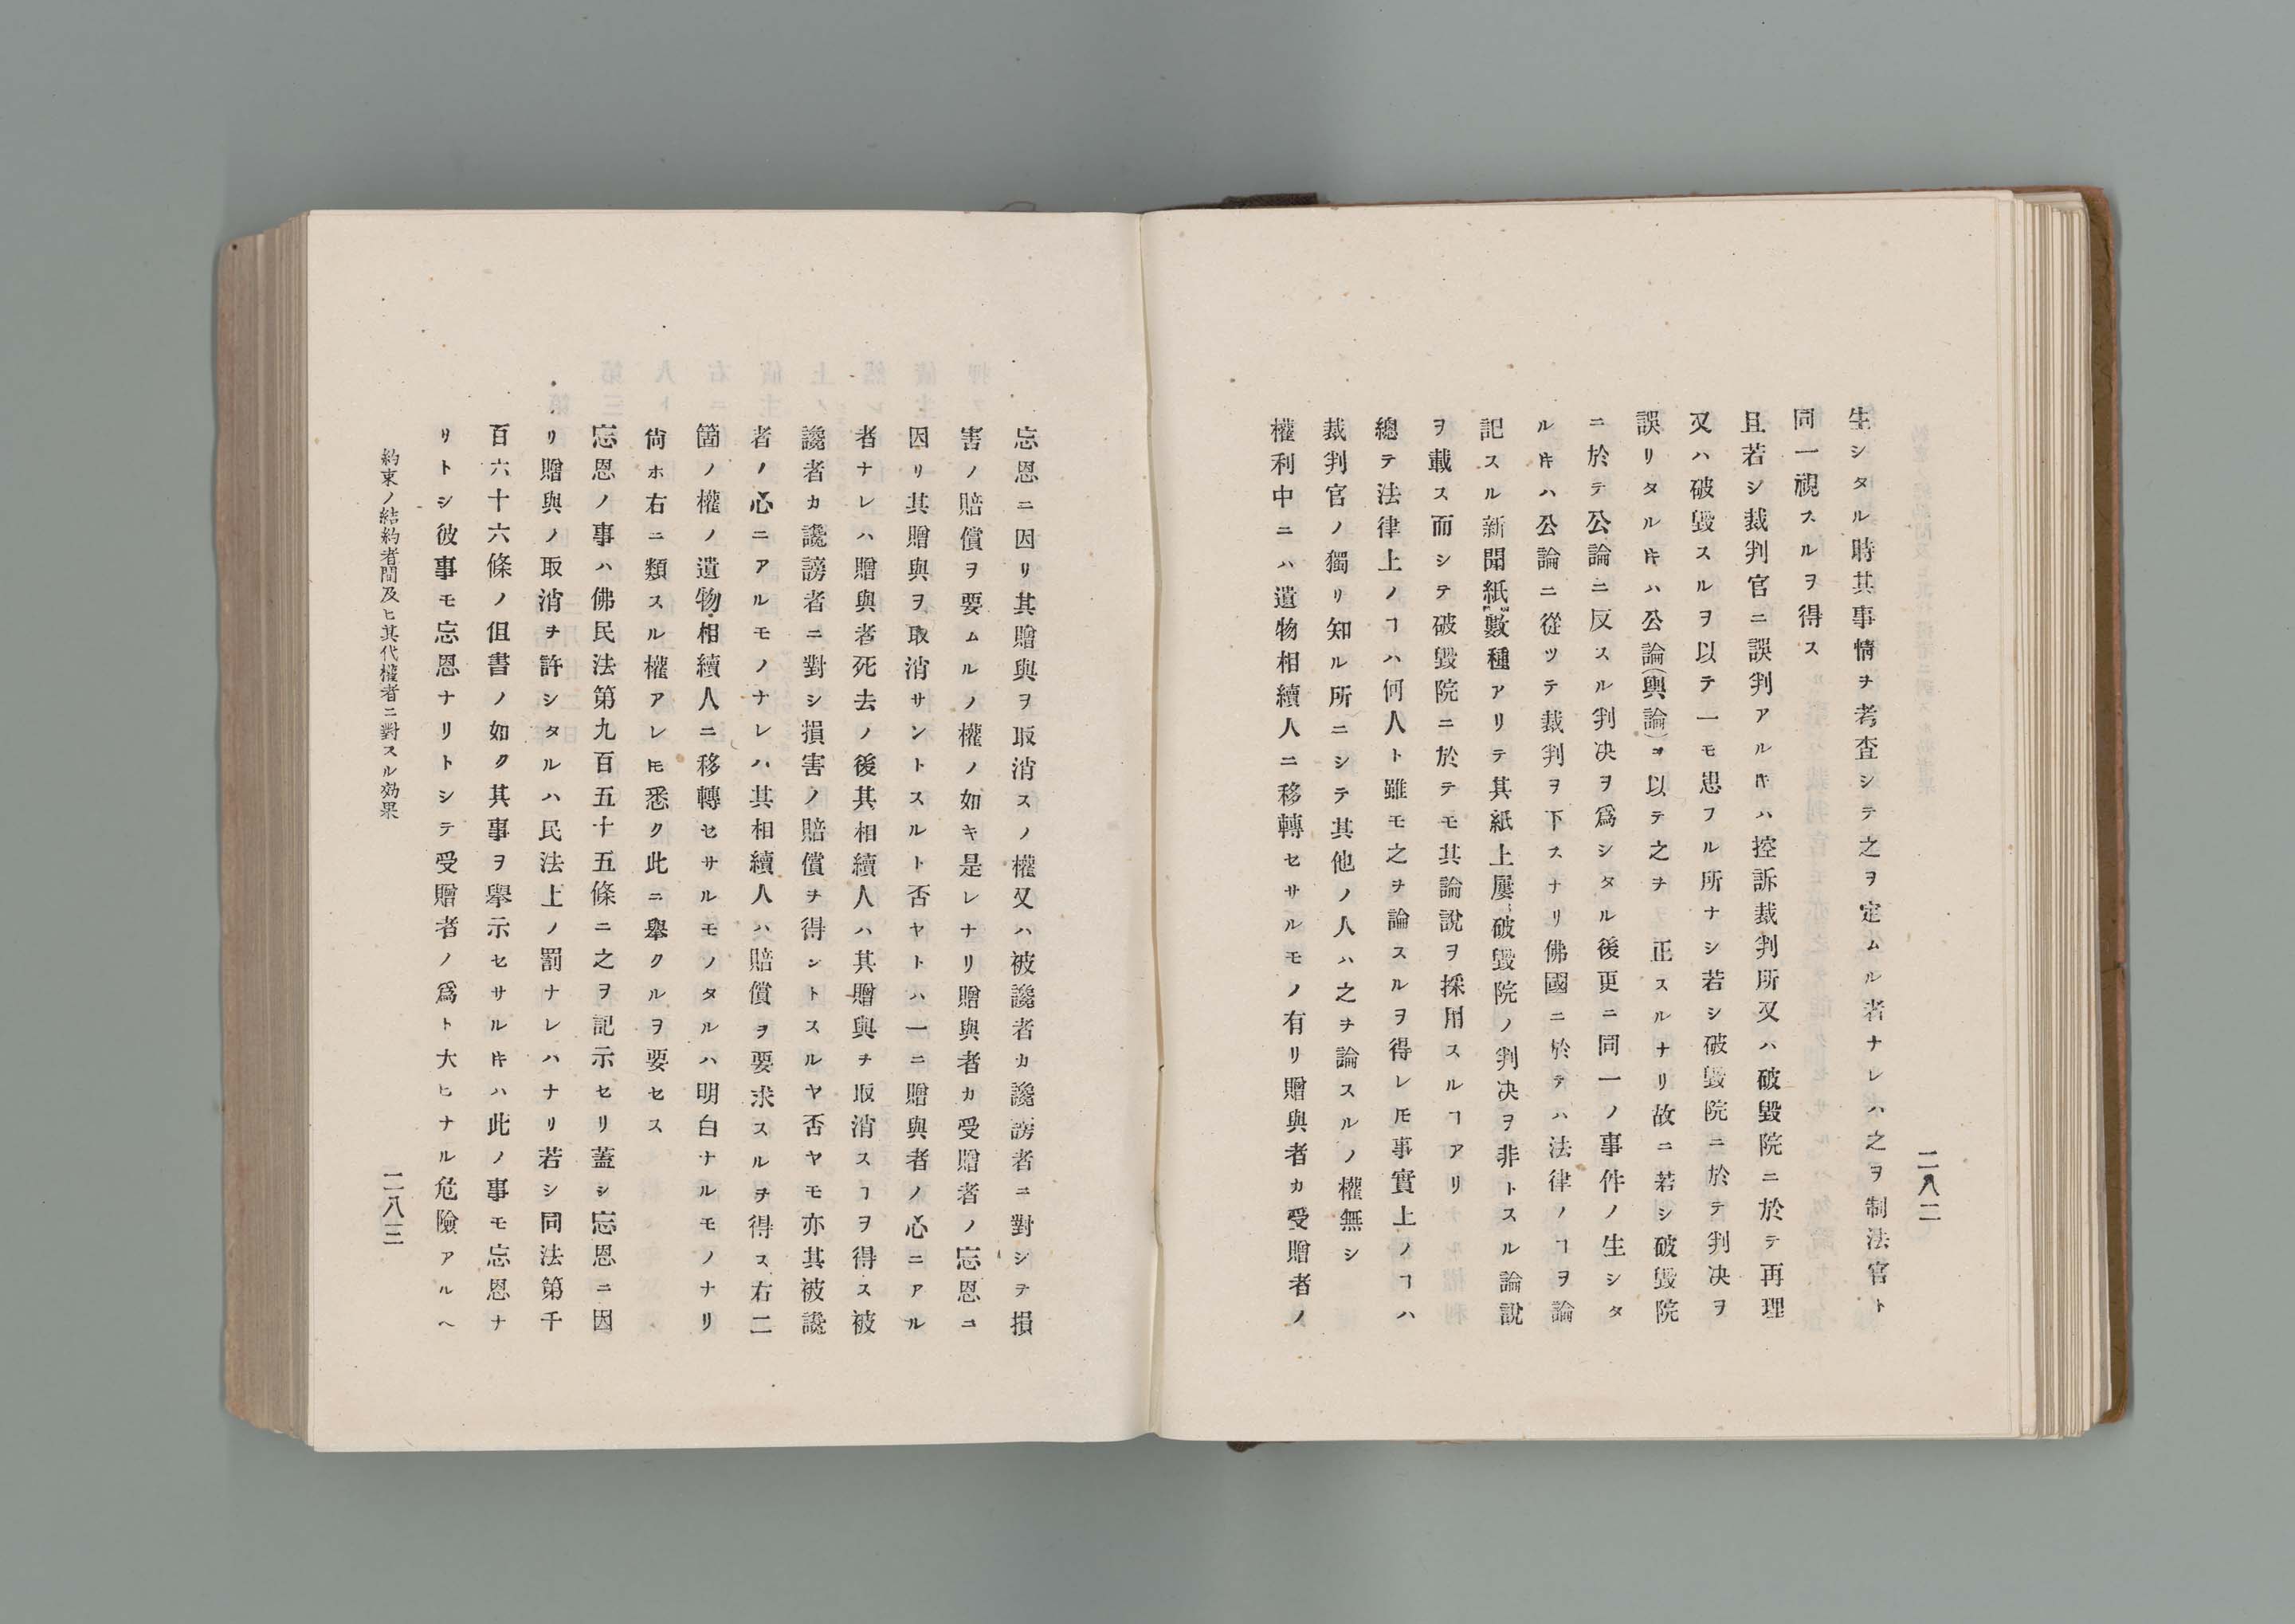 二八二
生シタル時其事情ヲ考査シテ之ヲ定ムル者ナレハ之ヲ制法官ト
同一視スルヲ得ス
且若シ裁判官ニ誤判アルキハ控訴裁判所又ハ破毀院ニ於テ再理
又ハ破毀スルヲ以テ一モ患フル所ナシ若シ破毀院ニ於テ判决ヲ
誤リタルキハ公論(輿論)ヲ以テ之ヲ正スルナリ故ニ若シ破毀院
ニ於テ公論ニ反スル判决ヲ爲シタル後更ニ同一ノ事件ノ生シタ
ルキハ公論ニ從ツテ裁判ヲ下スナリ佛國ニ於テハ法律ノヿヲ論
記スル新聞紙數種アリテ其紙上屢破毀院ノ判决ヲ非トスル論説
ヲ載ス而シテ破毀院ニ於テモ其論説ヲ採用スルヿアリ
總テ法律上ノヿハ何人ト雖モ之ヲ論スルヲ得レ𪜈事實上ノヿハ
裁判官ノ獨リ知ル所ニシテ其他ノ人ハ之ヲ論スルノ權無シ
權利中ニハ遺物相續人ニ移轉セサルモノ有リ贈與者カ受贈者ノ
忘恩ニ因リ其贈與ヲ取消スノ權又ハ被讒者カ讒謗者ニ對シテ損
害ノ賠償ヲ要ムルノ權ノ如キ是レナリ贈與者カ受贈者ノ忘恩ニ
因リ其贈與ヲ取消サントスルト否ヤトハ一ニ贈與者ノ心ニアル
者ナレハ贈與者死去ノ後其相續人ハ其贈與ヲ取消スヿヲ得ス被
讒者カ讒謗者ニ對シ損害ノ賠償ヲ得ントスルヤ否ヤモ亦其被讒
者ノ心ニアルモノナレハ其相續人ハ賠償ヲ要求スルヲ得ス右二
箇ノ權ノ遺物相續人ニ移轉セサルモノタルハ明白ナルモノナリ
尙ホ右ニ類スル權アレ𪜈悉ク此ニ擧クルヲ要セス
忘恩ノ事ハ佛民法第九百五十五條ニ之ヲ記示セリ蓋シ忘恩ニ因
リ贈與ノ取消ヲ許シタルハ民法上ノ罰ナレハナリ若シ同法第千
百六十六條ノ但書ノ如ク其事ヲ擧示セサルキハ此ノ事モ忘恩ナ
リトシ彼事モ忘恩ナリトシテ受贈者ノ爲ト大ヒナル危險アルヘ
約束ノ結約者間及ヒ其代權者ニ對スル効果
二八三